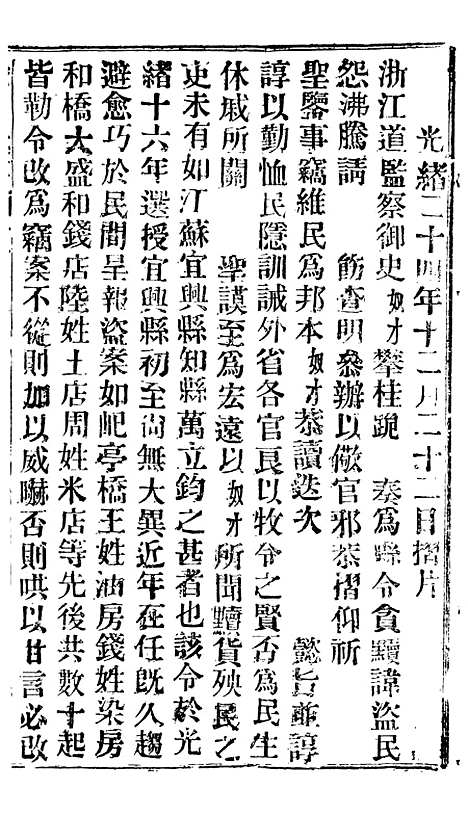 光緒二十四年十二月二十二日摺片
浙江道監察御史奴才攀桂跪　奏爲縣令貪黷諱盜民
怨沸騰請　飭查明參辦以儆官邪恭摺仰祈
聖鑒事竊維民爲邦本奴才恭讀迭次　懿旨諄諄
諄以勤恤民隱訓誡外省各官良以牧令之賢否爲民生
休戚所關　聖謨至爲宏遠以奴才所聞黷貨殃民之
吏未有如江蘇宜興縣知縣萬立鈞之甚者也該令於光
緒十六年選授宜興縣初至尙無大異近年在任旣久趨
避愈巧於民間呈報盜案如屺亭橋王姓油房錢姓染房
和橋大盛和錢店陸姓土店周姓米店等先後共數十起
皆勒令改爲竊案不從則加以威嚇否則哄以甘言必改